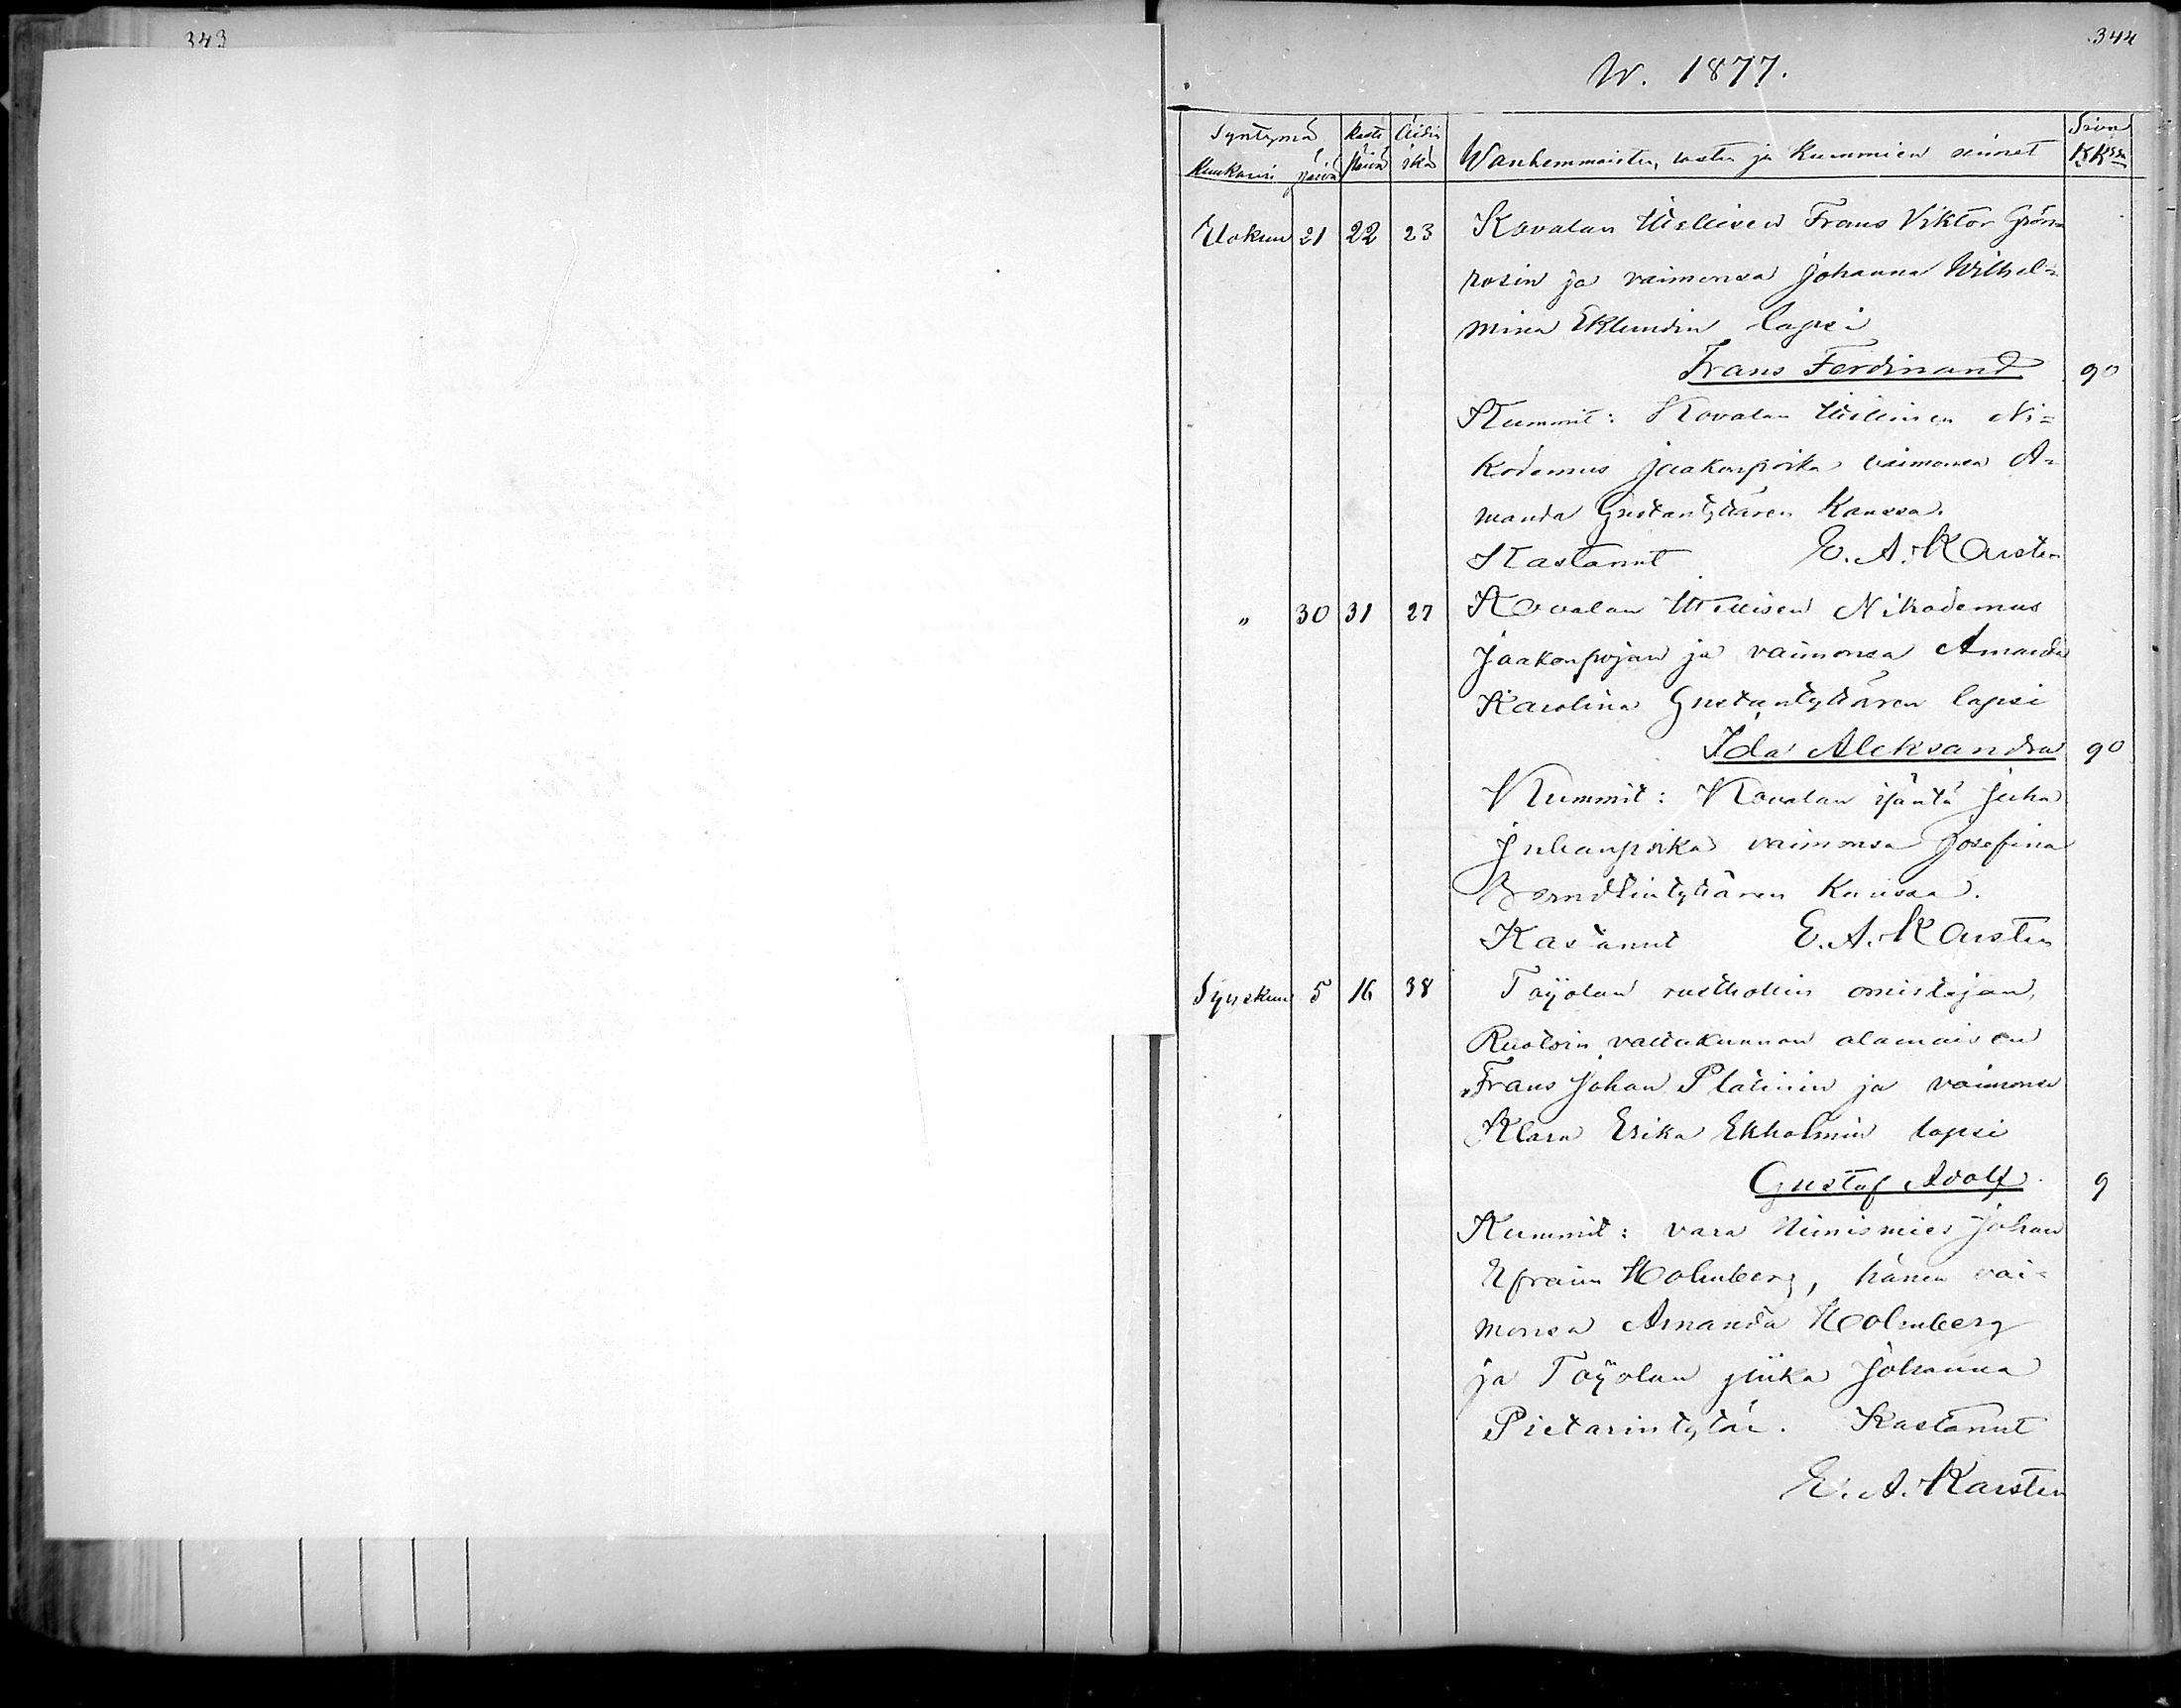 343
344
W. 1877.
Syntymä Kaste Äidin Wanhemmaiten, lasten ja Kummien nimet Sivu
Kuukausi päivä päivä ikä KKssa
Elokuu 21 22 23 Kovalan Itsellisen Frans Viktor Grön=
rosin ja vaimonsa Johanna Wilhel=
mina Eklundin lapsi
Frans Ferdinand 90
Kummit: Kovalan Itsellinen Ni=
kodemus Jaakonpoika vaimonsa A=
manda Gustantyttären kanssa.
Kastanut E. A. Karsten
" 30 31 27 Kovalan Itsellisen Nikodemus
Jaakonpojan ja vaimonsa Amanda
Karolina Gustantyttären lapsi
Ida Aleksandra 90
Kummit: Kovalan isäntä Juha
Juhanpoika vaimonsa Josefina
Berndtintyttären kanssa.
Kastanut E. A. Karsten
Syyskuu 5 16 38 Töyölan rusthollin omistajan,
Ruotsin valtakunnan alamaisen
Frans Johan Platinin ja vaimonsa
Klara Erika Ekholmin lapsi
Gustaf Adolf. 9
Kummit: vara Nimismies Johan
Efraim Holmberg, hänen vai=
monsa Amanda Holmberg
ja Töyölan piika Johanna
Pietarintytär. Kastanut
E. A. Karsten